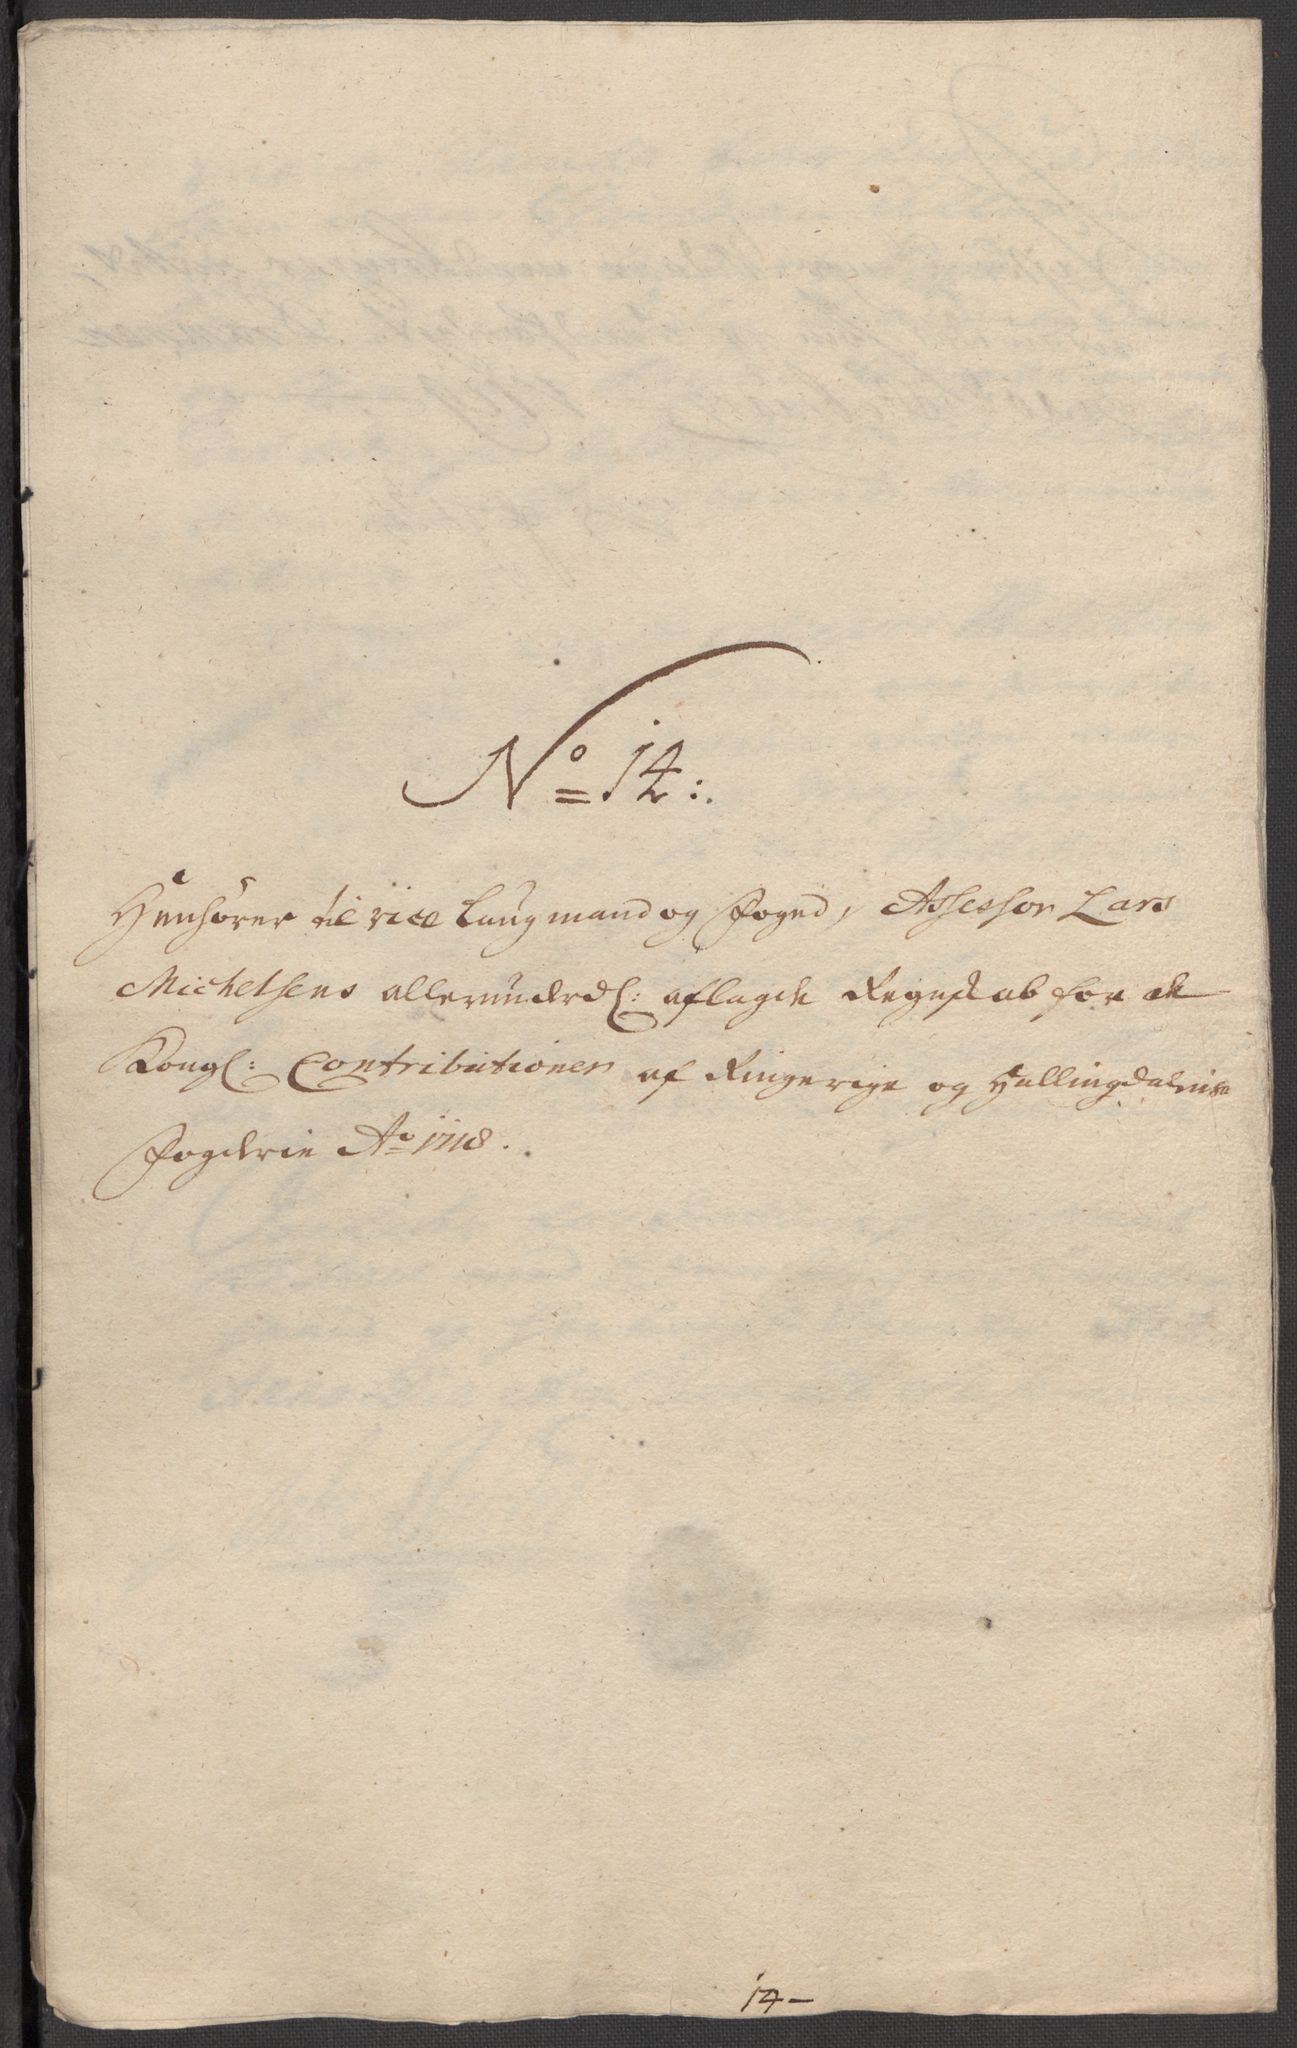 No 14:
Henhører til vice Laugmand og Foged, Assessor Lars
Michelsens allerunderd: aflagde Regnskab for de
Kongl: Contributioner af Ringerige og Hallingdalens
Fogderie Ao 1718.
14-